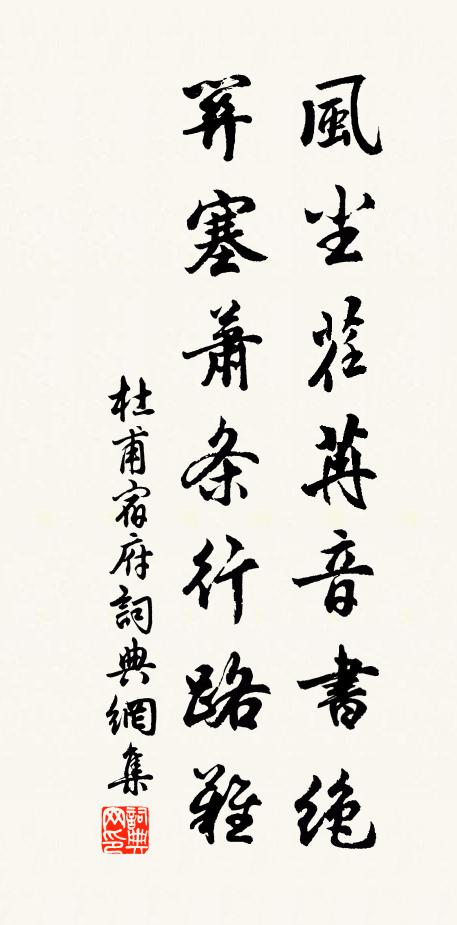 風尘荏苒音書絶
關塞蕭条行路難
杜甫宿府詞典網集
詞典
网印